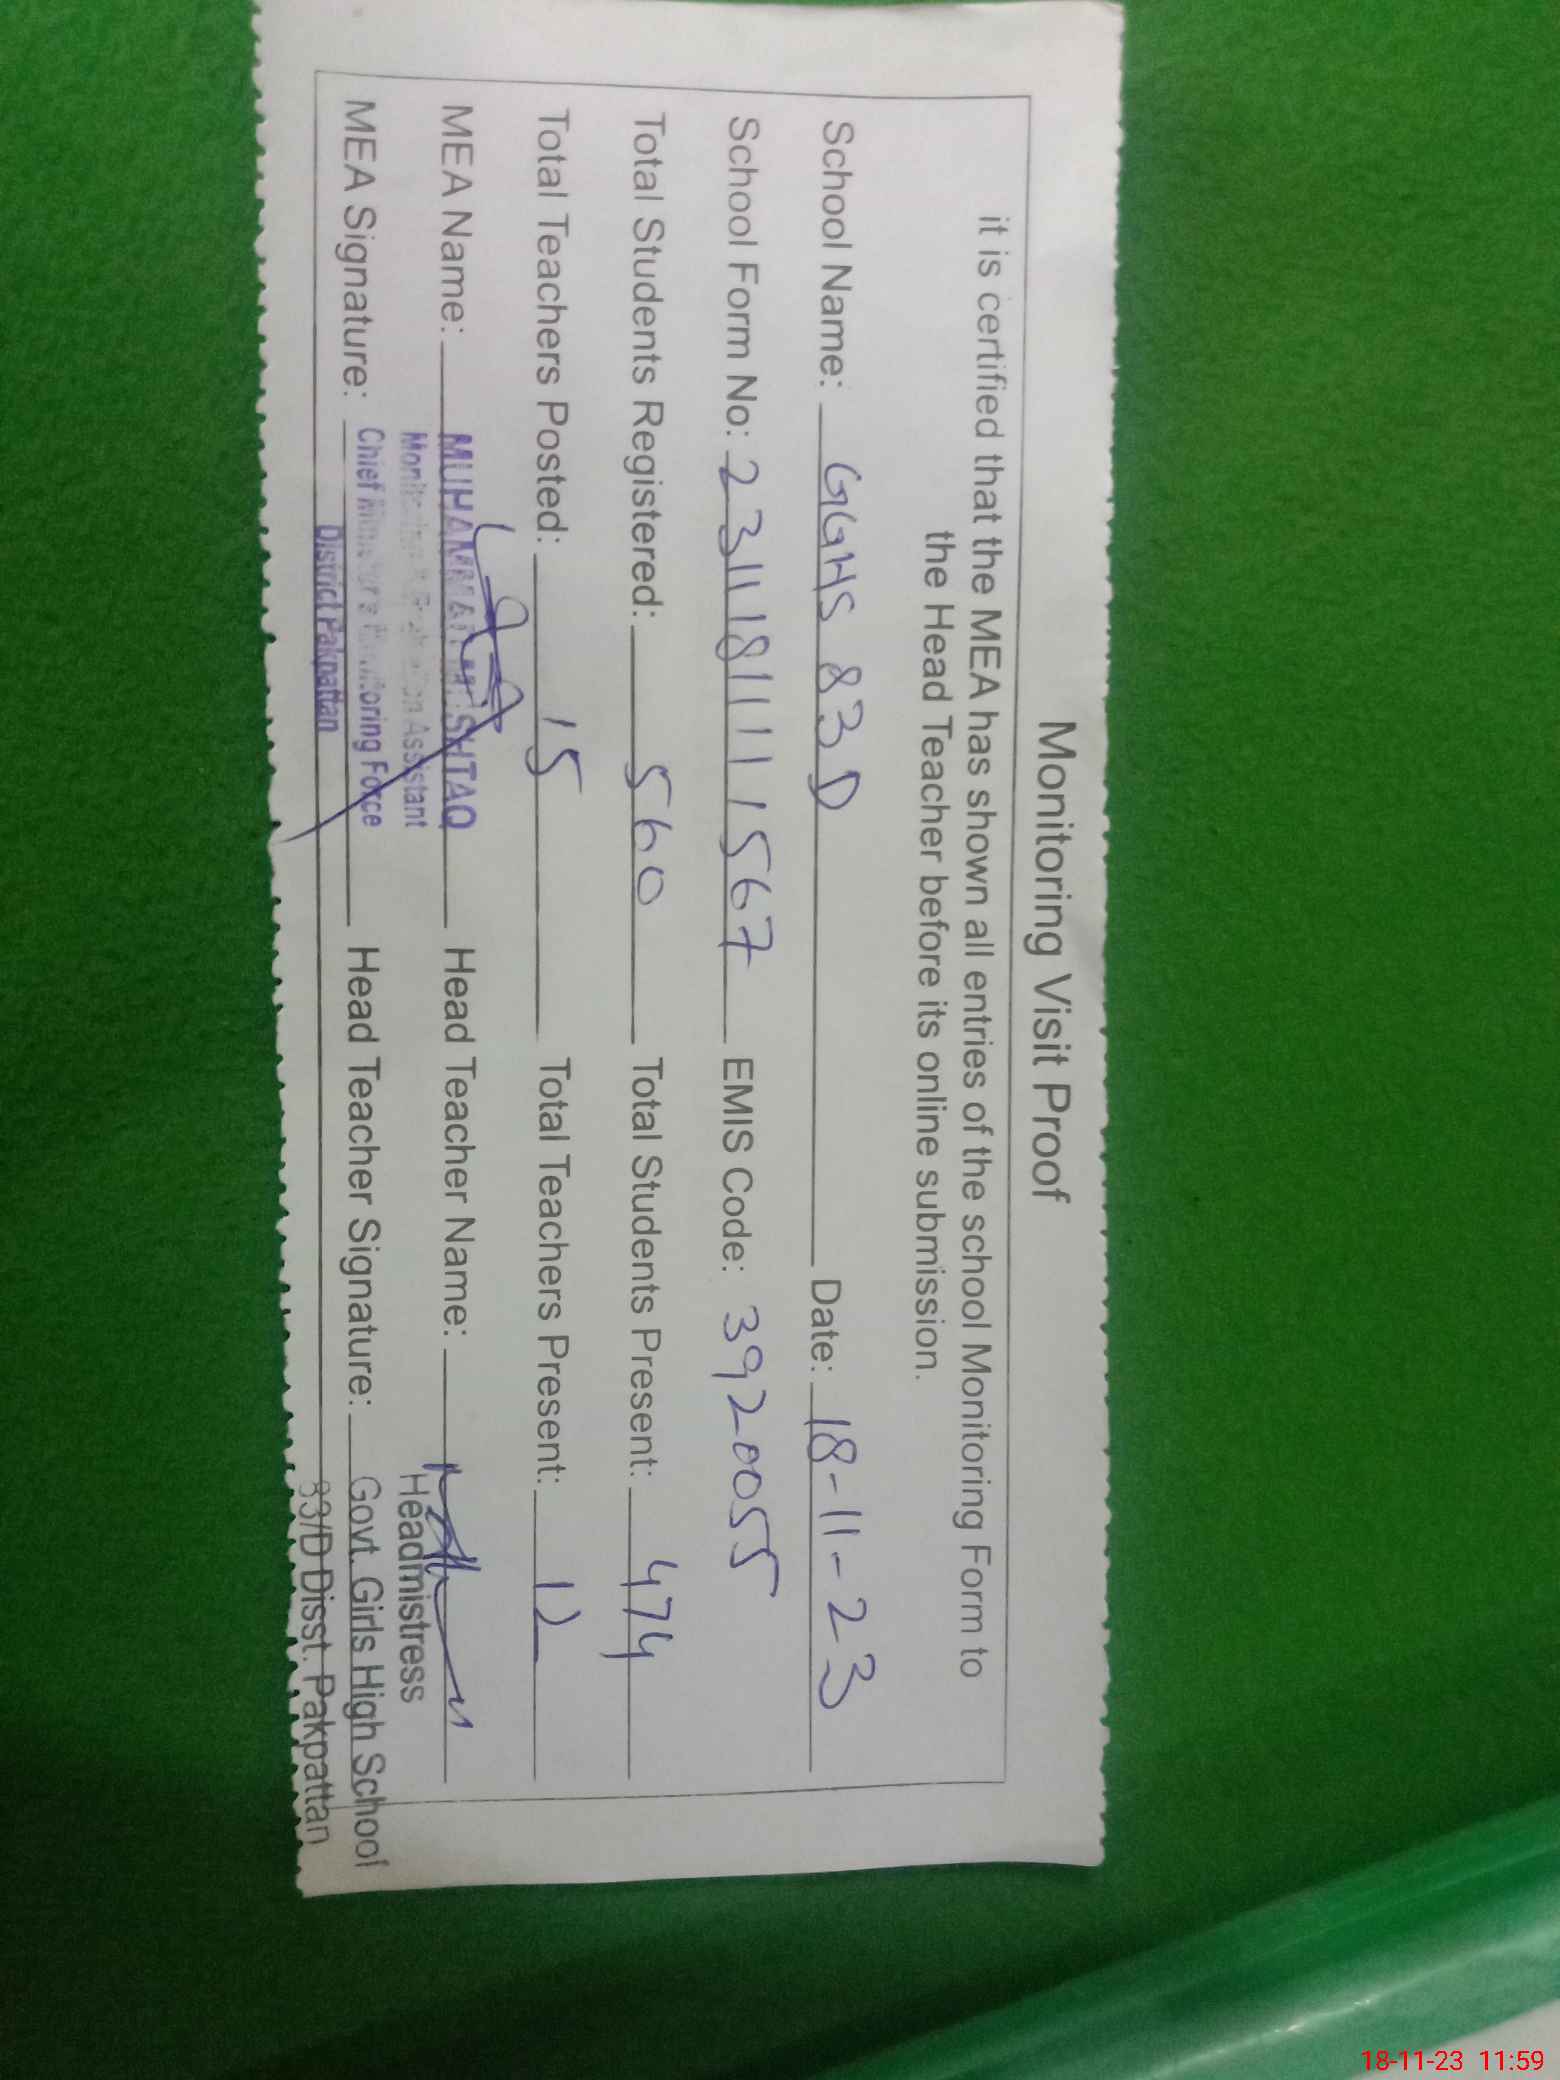 Monitoring Visit Proof
it is certified that the MEA has shown all entries of the school Monitoring Form to
the Head Teacher before its online submission.
School Name: GGHS 83D Date: 18-11-23
School Form No: 231118111567 EMIS Code: 3920055
Total Students Registered: 560 Total Students Present: 474
Total Teachers Posted: 15 Total Teachers Present: 12
MEA Name: MUHAMMAD MUSHTAQ Head Teacher Name:
Monitoring Assistant Headmistress
MEA Signature: Chief Monitoring Force Head Teacher Signature: Govt. Girls High School
District Pakpattan 83/D Disst. Pakpattan
18-11-23 11:59